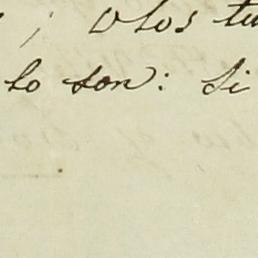 ; O los tu
lo son: Si